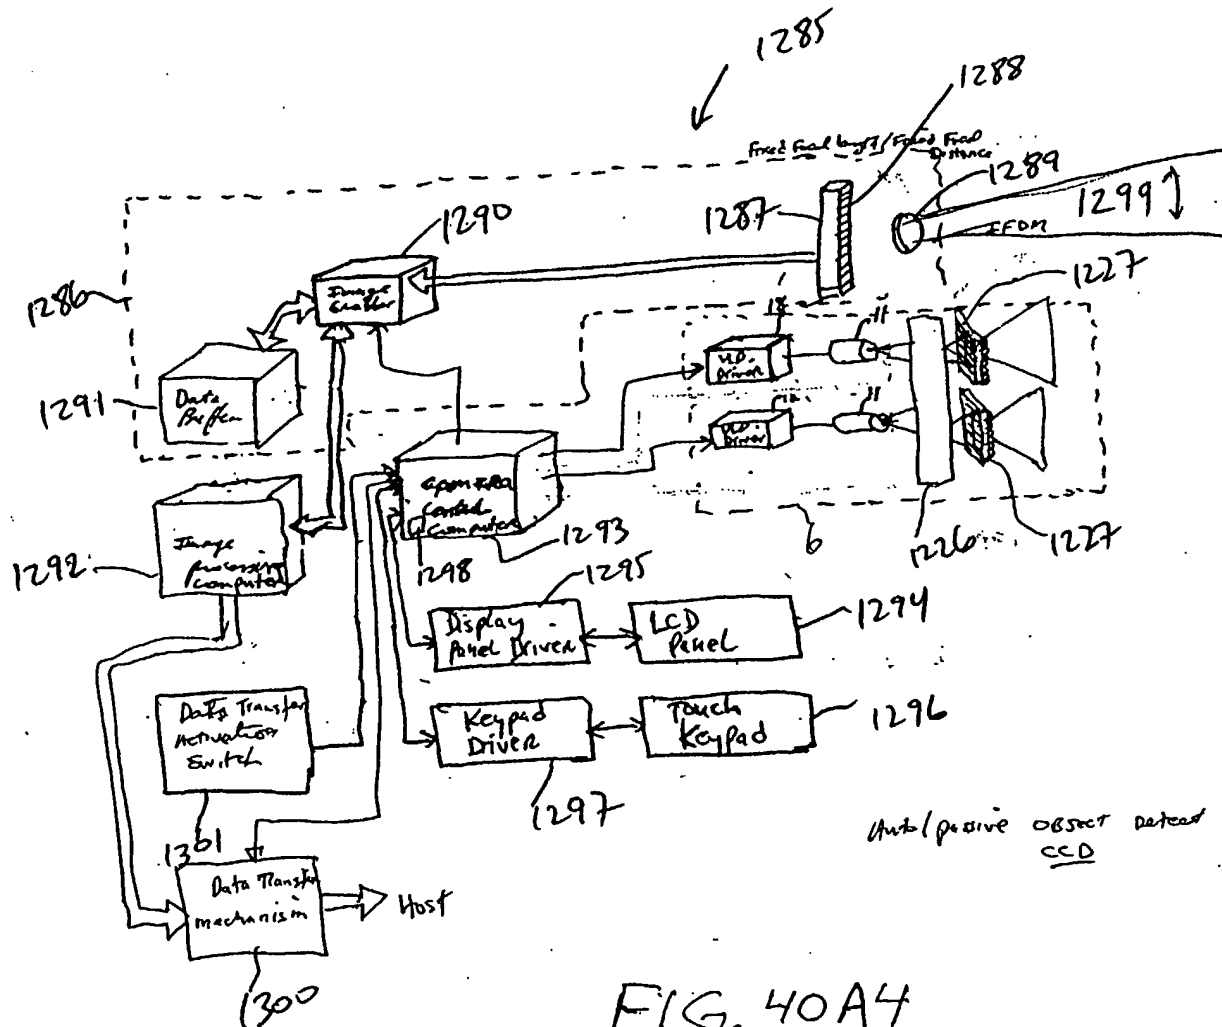 1285
1288
Fixed Focal Length / Fixed Focal
Distance
1289
1290
1287
1299
FFOM
1227
1286
Image
Grabber
18
11
VLD-
Driver
1291
Data
Buffer
11
VLD-
Driver
Camera
Control
Computer
1293
6
1226
1227
1292
Image
processing
Computer
1298
1295
Display
Panel Driver
LCD
Panel
1294
Data Transfer
Activation
Switch
Keypad
Driver
Touch
Keypad
1296
1297
1301
Auto/passive OBJECT Detect
CCD
Data Transfer
mechanism
Host
1300
FIG. 40A4